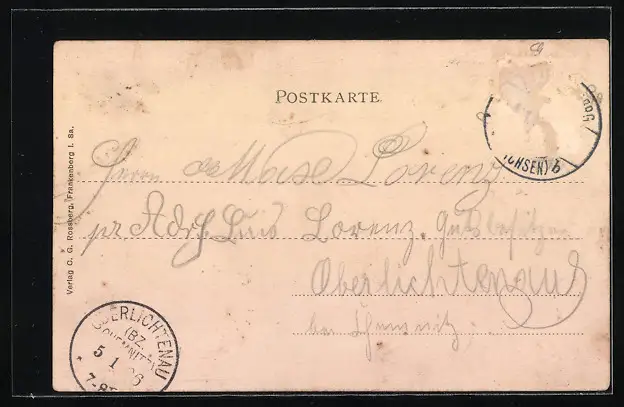 POSTKARTE
(SACHSEN) b
Herrn Max Lorenz
pr Adr. Luis Lorenz. Gutsbesitzer
Oberlichtenau
bei Chemnitz
Verlag C. G. Rossberg, Frankenberg i. Sa.
OBERLICHTENAU
(BZ.
CHEMNITZ)
5 1 06
7-8